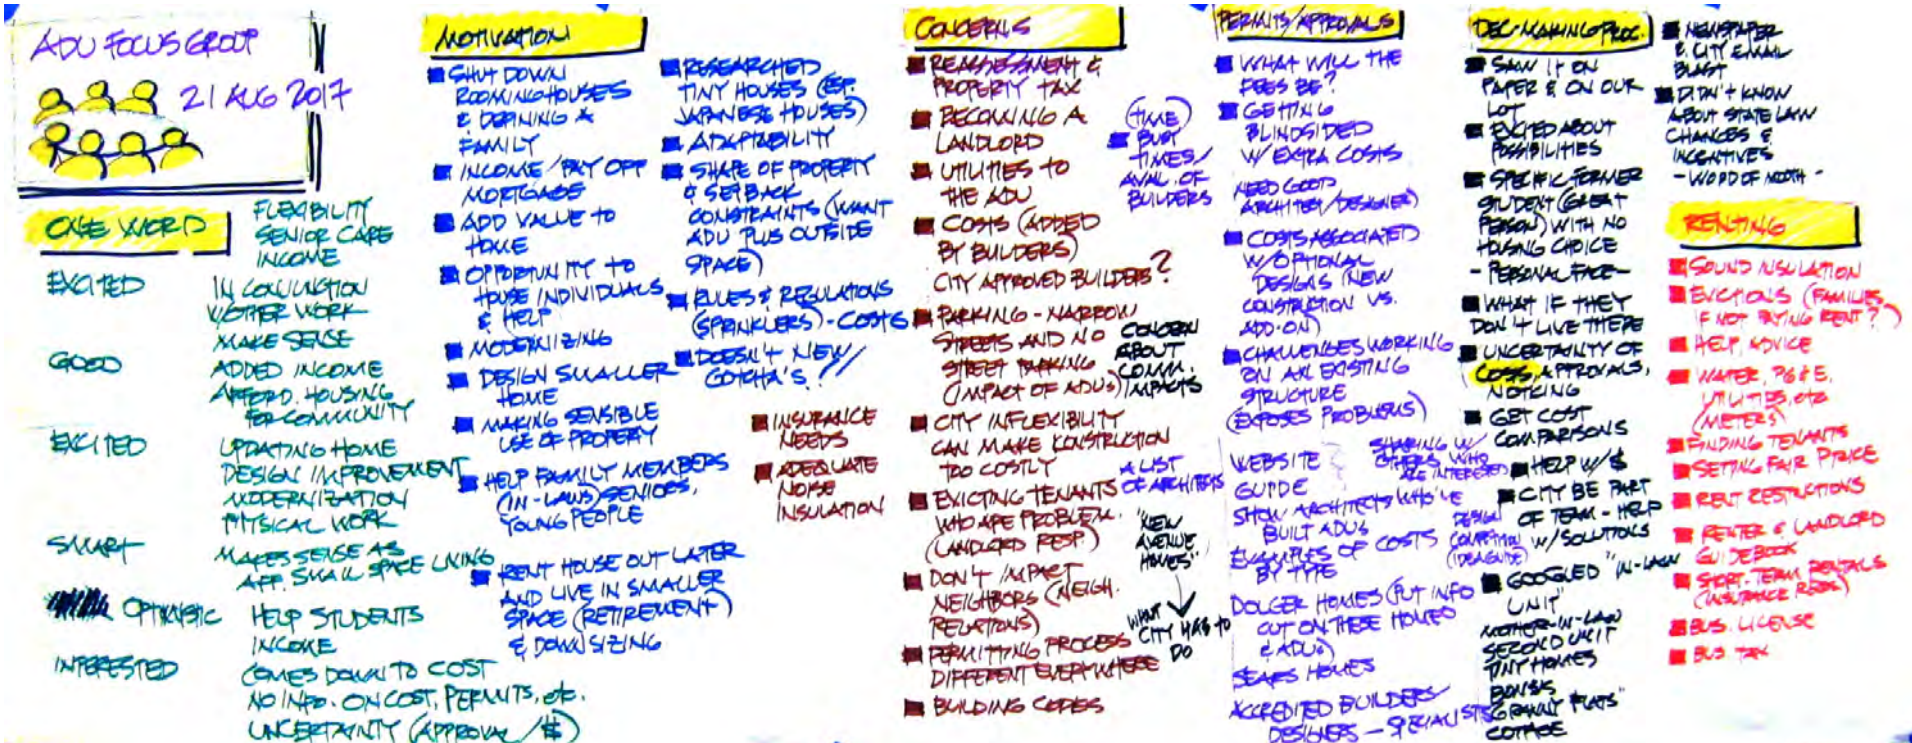 ADU FOCUS GROUP
21 AUG 2017
ONE WORD
FLEXIBILITY
SENIOR CARE
INCOME
EXCITED
IN CONJUNCTION
W/OTHER WORK
MAKE SENSE
GOOD
ADDED INCOME
AFFORD. HOUSING
FOR COMMUNITY
EXCITED
UPDATING HOME
DESIGN IMPROVEMENT
MODERNIZATION
PHYSICAL WORK
SMART
MAKES SENSE AS
AFF. SMALL SPACE LIVING
OPTIMISTIC
HELP STUDENTS
INCOME
INTERESTED
COMES DOWN TO COST
NO INFO. ON COST, PERMITS, etc.
UNCERTAINTY (APPROVAL/$)
MOTIVATION
SHUT DOWN
ROOMINGHOUSES
& DEFINING A
FAMILY
INCOME/PAY OFF
MORTGAGE
ADD VALUE TO
HOME
OPPORTUNITY TO
HOUSE INDIVIDUALS
& HELP
MODERNIZING
DESIGN SMALLER
HOME
MAKING SENSIBLE
USE OF PROPERTY
HELP FAMILY MEMBERS
(IN-LAWS) SENIORS,
YOUNG PEOPLE
RENT HOUSE OUT LATER
AND LIVE IN SMALLER
SPACE (RETIREMENT)
& DOWNSIZING
RESEARCHED
TINY HOUSES (ESP.
JAPANESE HOUSES)
ADAPTABILITY
SHAPE OF PROPERTY
& SETBACK
CONSTRAINTS (WANT
ADU PLUS OUTSIDE
SPACE)
RULES & REGULATIONS
(SPRINKLERS) - COSTS
DOESN'T NEW/
GOTCHA'S!!
INSURANCE
NEEDS
ADEQUATE
NOISE
INSULATION
CONCERNS
REASSESSMENT &
PROPERTY TAX
BECOMING A
LANDLORD
UTILITIES TO
THE ADU
COSTS (ADDED
BY BUILDERS)
CITY APPROVED BUILDERS?
PARKING - NARROW
STREETS AND NO
STREET PARKING
(IMPACT OF ADUs)
CONCERN
ABOUT
COMM.
IMPACTS
CITY INFLEXIBILITY
CAN MAKE KONSTRUCTION
TOO COSTLY
EXICTING TENANTS
WHO ARE PROBLEM.
(LANDLORD RESP.)
DON'T IMPACT
NEIGHBORS (NEIGH.
RELATIONS)
PERMITTING PROCESS
DIFFERENT EVERYWHERE
BUILDING CODES
(TIME)
BUSY
TIMES/
AVAL. OF
BUILDERS
A LIST
OF ARCHITECTS
"NEW
AVENUE
HOMES"
WHAT
CITY HAS TO
DO
PERMITS/APPROVALS
WHAT WILL THE
FEES BE?
GETTING
BLINDSIDED
W/ EXTRA COSTS
NEED GOOD
ARCHITECT/DESIGNER)
COSTS ASSOCIATED
W/OPTIONAL
DESIGNS (NEW
CONSTRUCTION VS.
ADD-ON)
CHALLENGES WORKING
ON AN EXISTING
STRUCTURE
(EXPOSES PROBLEMS)
WEBSITE
GUIDE
SHARING W/
OTHERS WHO
ARE INTERESED
SHOW ARCHITECTS WHO'VE
BUILT ADUs
EXAMPLES OF COSTS
BY TYPE
DESIGN
COMPETITION
(IDEAGUIDE)
DOLGER HOMES (PUT INFO
OUT ON THESE HOMES
& ADUs)
SEARS HOMES
ACCREDITED BUILDERS
DESIGNERS - SPECIALISTS
DEC-MAKING PROC.
SAW IT ON
PAPER & ON OUR
LOT
EXCITED ABOUT
POSSIBILITIES
SPECIFIC FORMER
STUDENT (GREAT
PERSON) WITH NO
HOUSING CHOICE
- PERSONAL FACE -
WHAT IF THEY
DON'T LIVE THERE
UNCERTAINTY OF
COSTS, APPROVALS,
NOTICING
GET COST
COMPARISONS
HELP W/$
CITY BE PART
OF TEAM - HELP
W/SOLUTIONS
GOOGLED "IN-LAW
UNIT"
MOTHER-IN-LAW
SECOND UNIT
TINY HOMES
GRANNY FLATS"
COTTAGE
NEWSPAPER
& CITY EMAIL
BLAST
DIDN'T KNOW
ABOUT STATE LAW
CHANGES &
INCENTIVES
- WORD OF MOUTH -
RENTING
SOUND INSULATION
EVICTIONS (FAMILIES
IF NOT PAYING RENT?)
HELP, ADVICE
WATER, PG&E,
UTILITIES, etc
(METERS)
FINDING TENANTS
SETTING FAIR PRICE
RENT RESTRICTIONS
RENTER & LANDLORD
GUIDEBOOK
SHORT-TERM RENTALS
(INSURANCE REQS.)
BUS. LICENSE
BUS. TAX